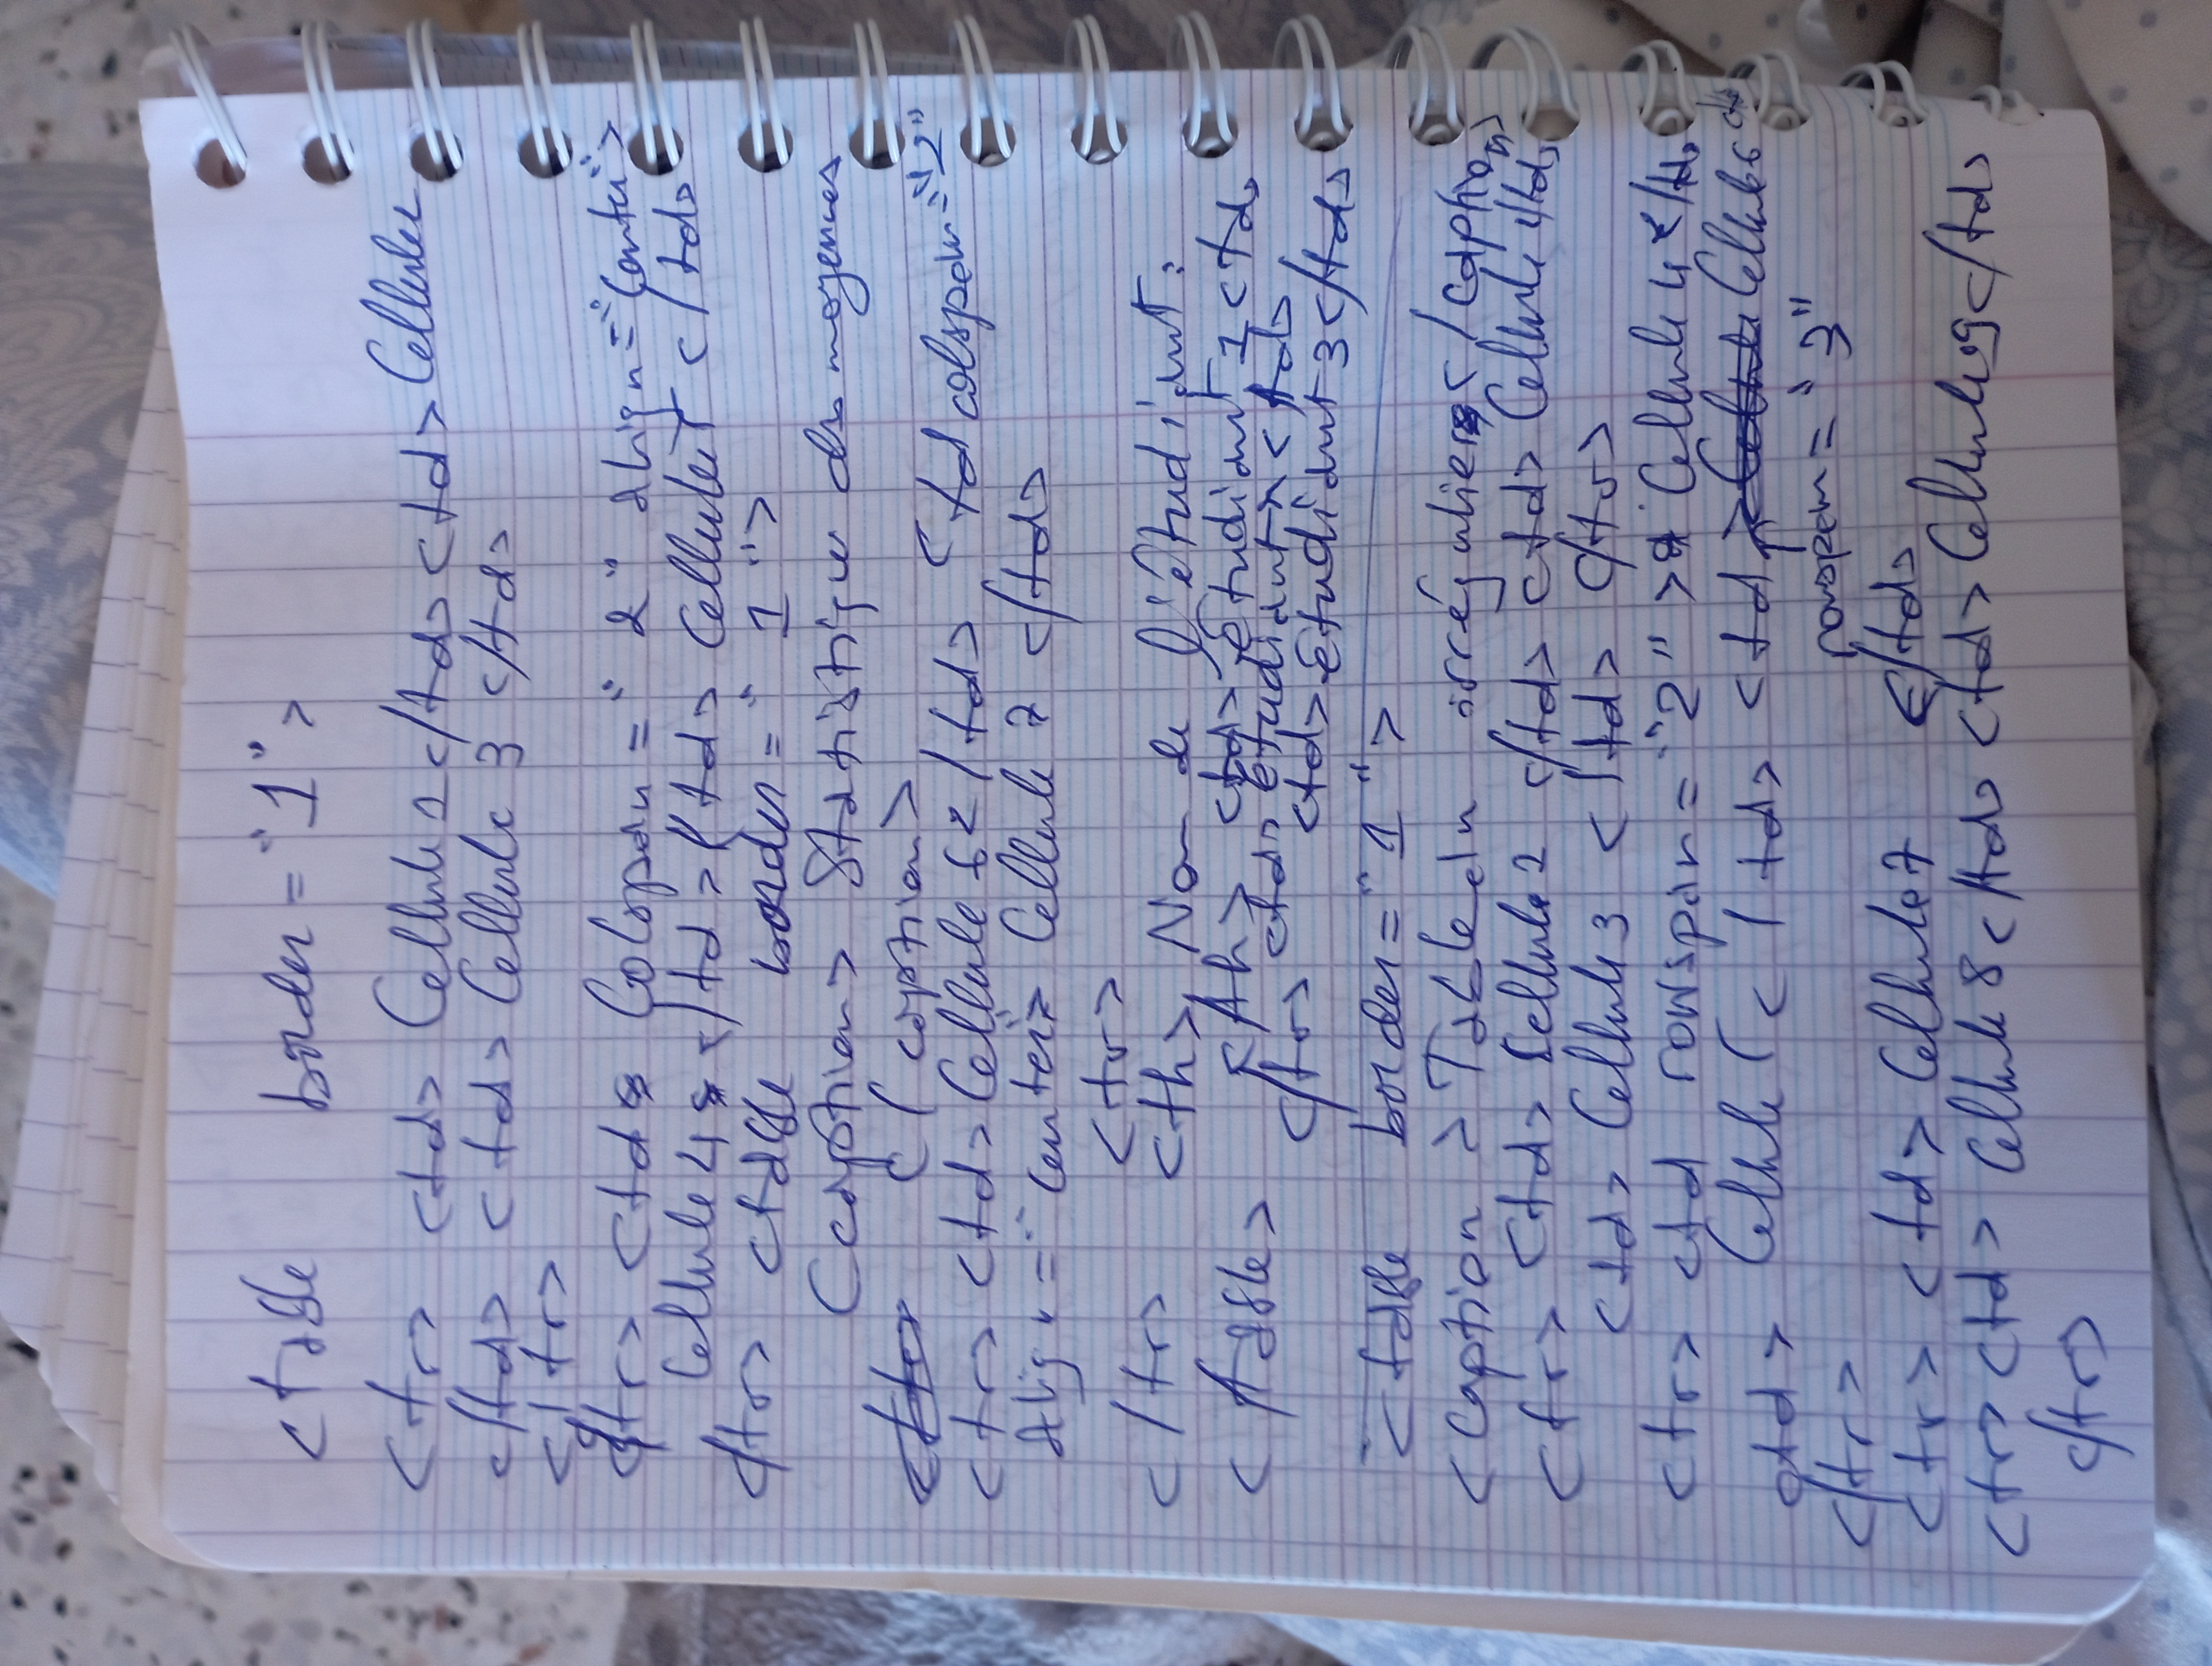 <table border="1">
<tr> <td> Cellule 1 </td> <td> Cellule 2
</td> <td> Cellule 3 </td>
</tr>
<tr> <td Colspan = "2" align="center">
Cellule 4 </td> <td> Cellule 5 </td>
</tr> <table border = "1">
<caption> Statistique des moyennes
</caption>
<tr> <td> Cellule 6 </td> <td colspan="2"
Align = "center"> Cellule 7 </td>
<tr>
</tr> <th> Nom de l'étudiant :
</table> </th> <td> étudiant 1 <td>
<td> étudiant 2 </td>
</tr> <td> étudiant 3 </td>
<table border="1">
<caption > Tableau irrégulier </caption>
<tr> <td> Cellule 2 </td> <td> Cellule </td>
<td> Cellule 3 </td> </tr>
<tr> <td rowspan = "2" > Cellule 4 </td>
<td> Cellule 5 </td> <td Cellule 6
rowspan = "3"
</tr>
<tr> <td> Cellule 7 </td>
<tr> <td> Cellule 8 </td> <td> Cellule 9 </td>
</tr>